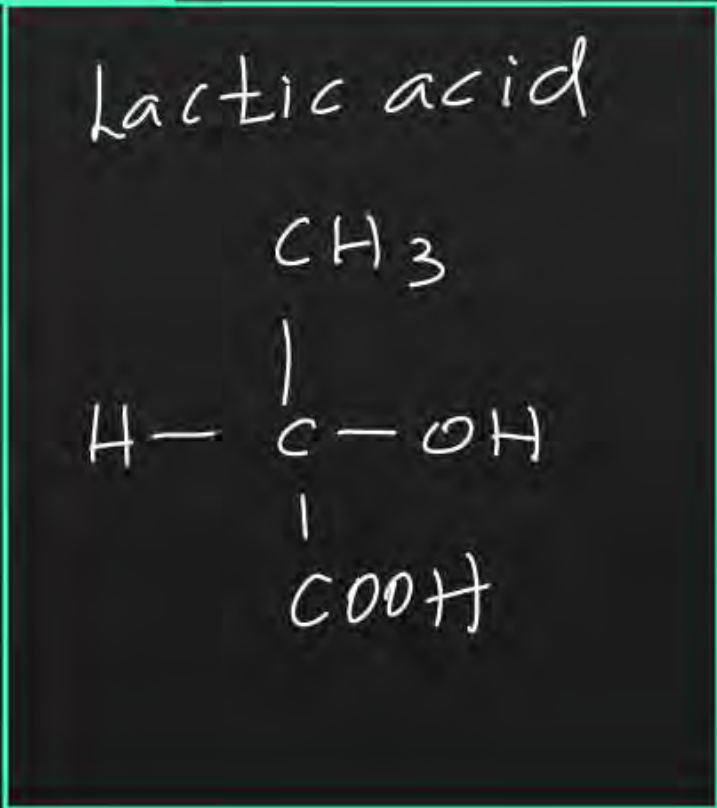 Lactic acid
CH3
|
H - C - OH
|
COOH